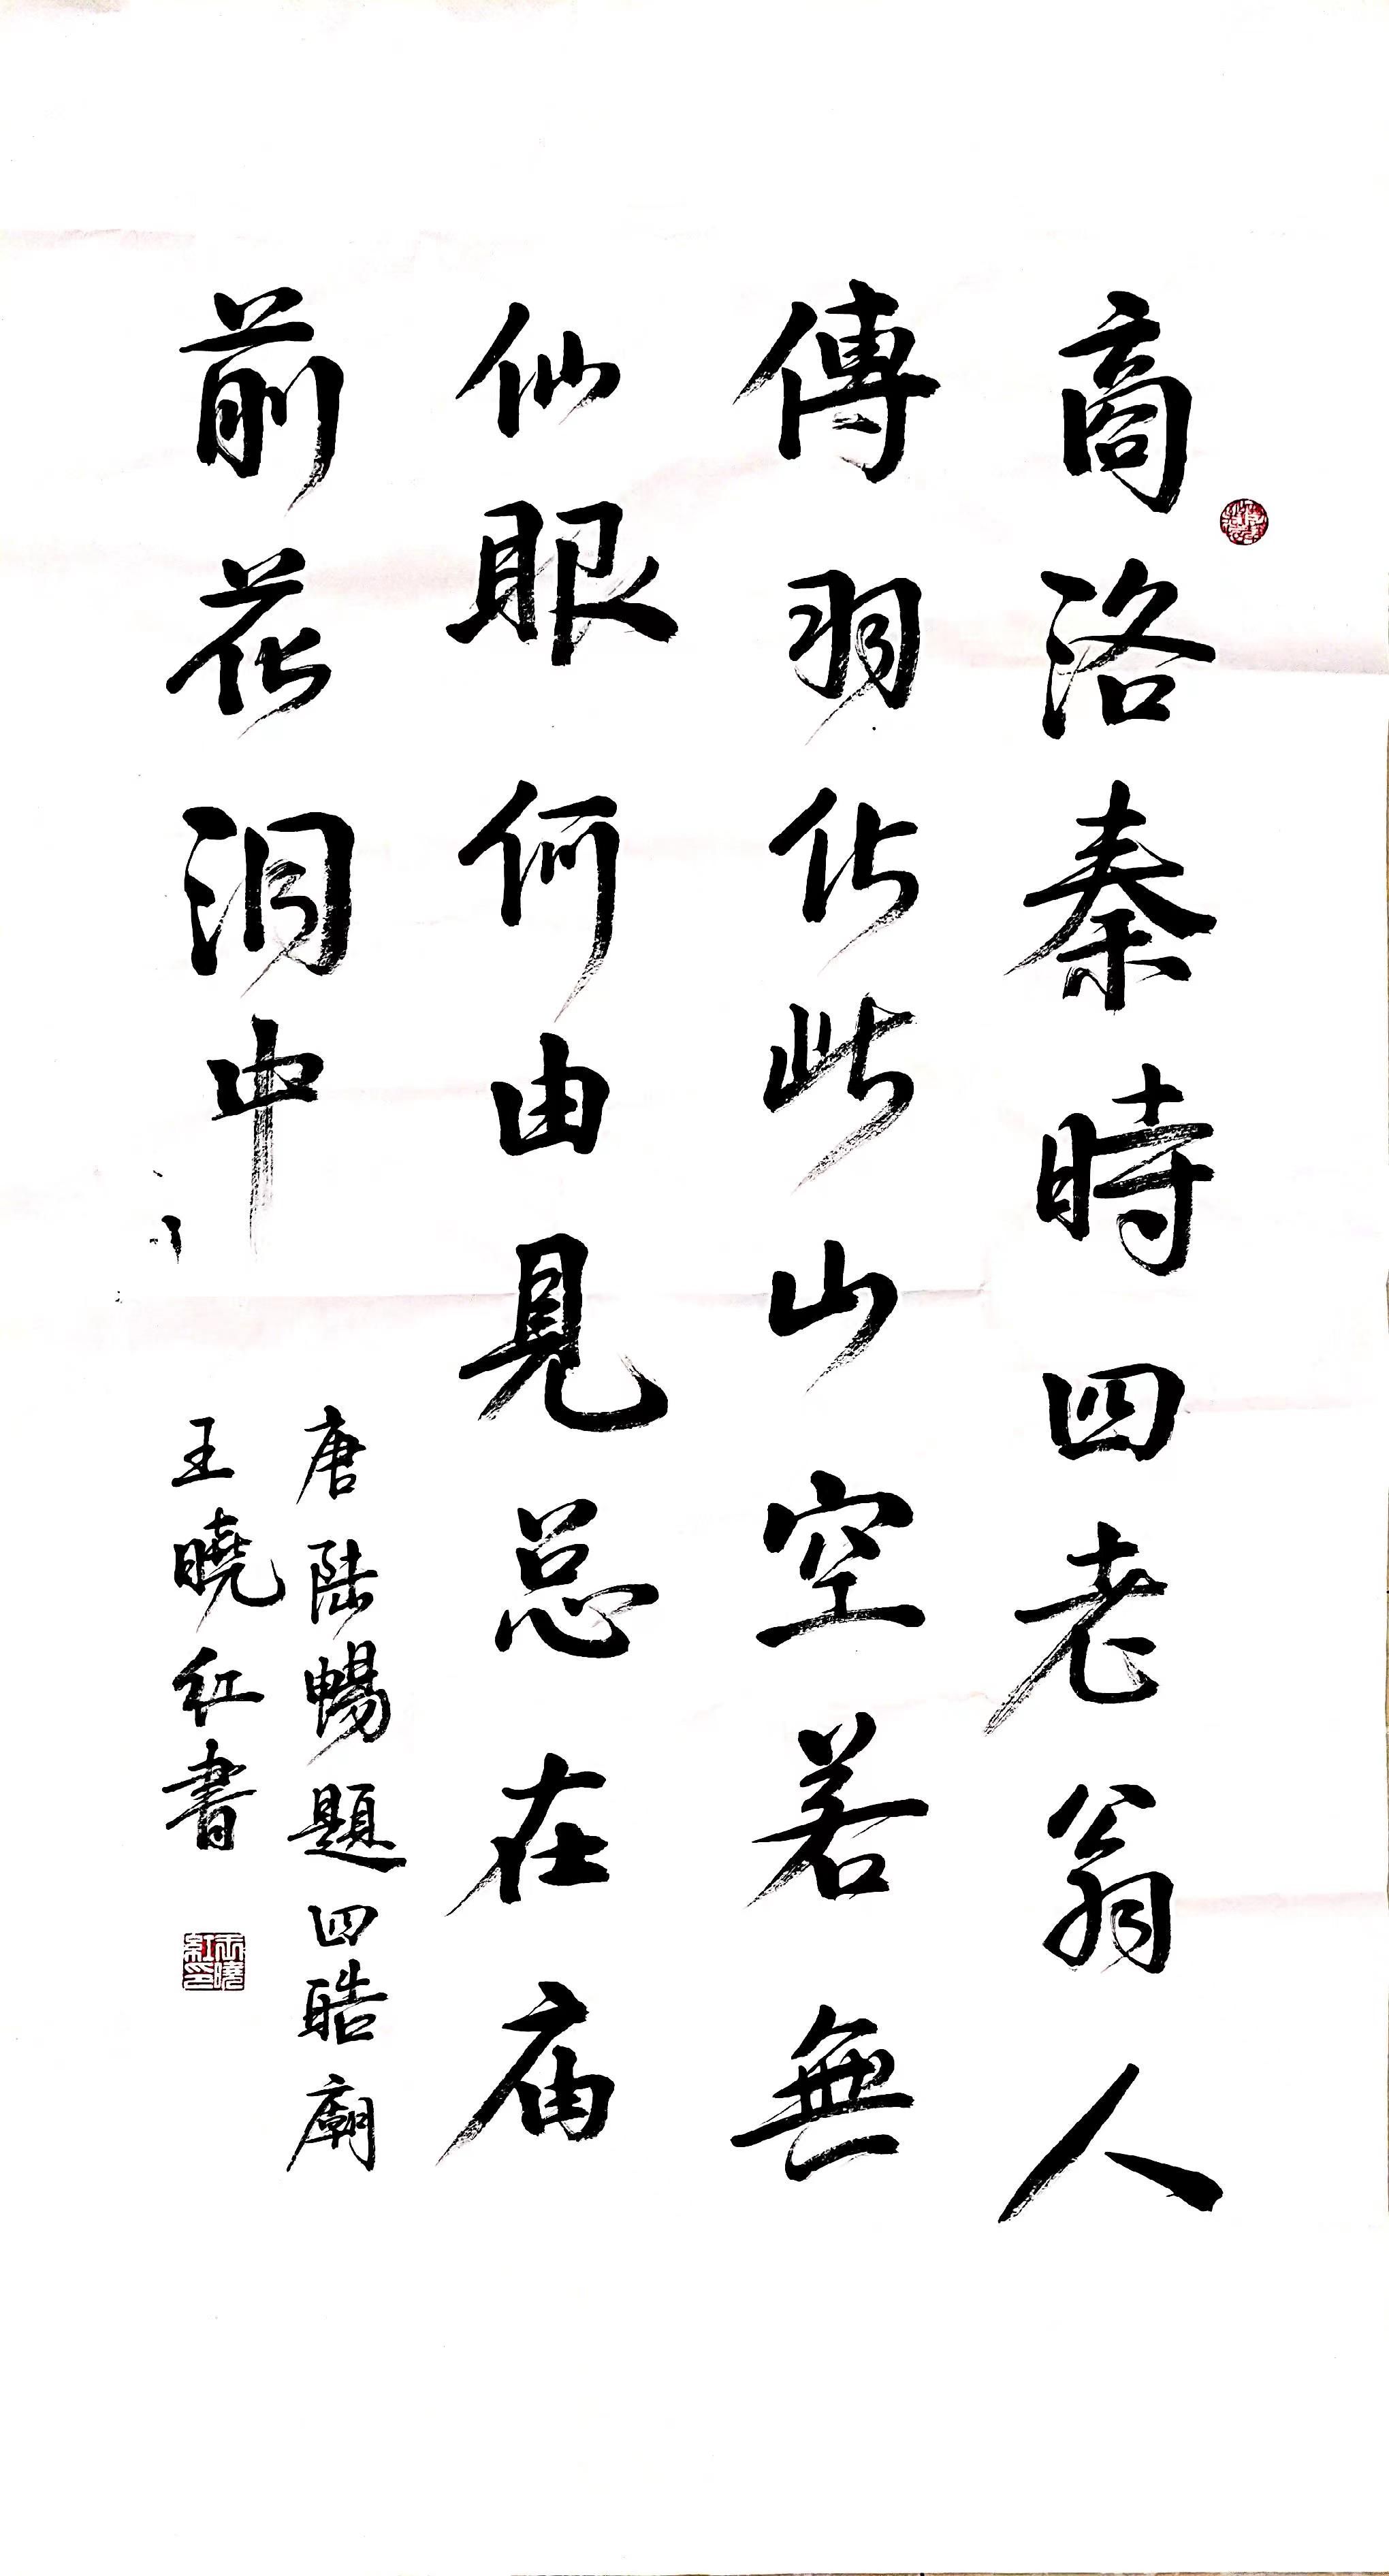 商洛秦時四老翁人
傳羽化此山空若無
仙眼何由見总在庙
前花洞中
唐陸暢題四晧廟
王曉红書
王曉紅印